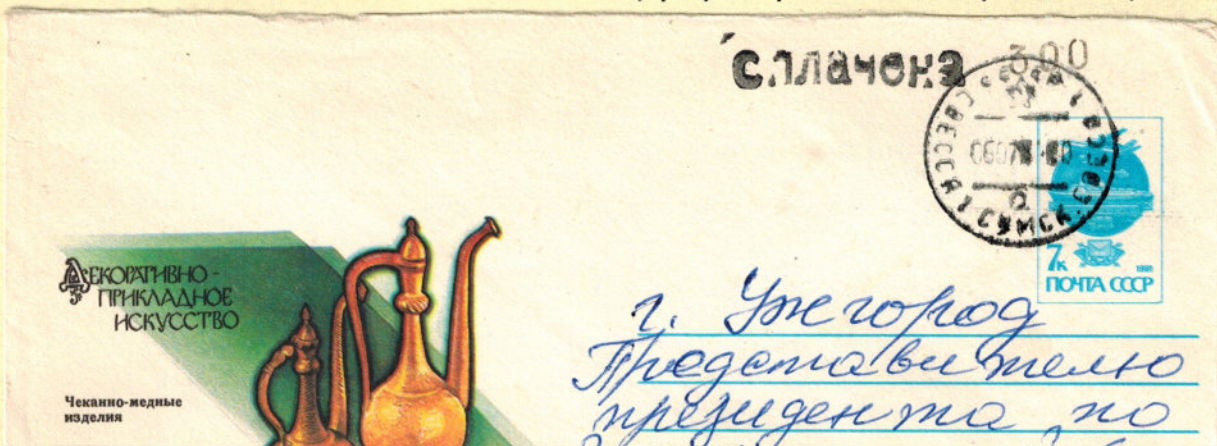 сплачена 300
7к 1991
ПОЧТА СССР
ДЕКОРАТИВНО-
ПРИКЛАДНОЕ
ИСКУССТВО
Чеканно-медные
изделия
г. Ужгород
Представителю
президента по